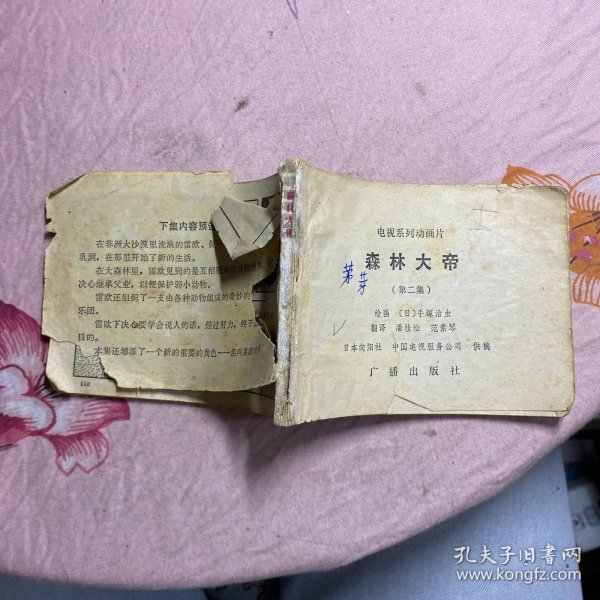 下集内容预告
在非洲大沙漠里流浪的雷欧，
乳洞，在那里开始了新的生活。
在大森林里，雷欧见到的是互相残杀的动物世界，
决心继承父业，以便保护弱小动物。
雷欧还组织了一支由各种动物组成的奇妙的
乐团。
雷欧下决心要学会说人的话，经过努力，终于
目的。
本集还增添了一个新的重要的角色——名叫
112
森林大帝
电视系列动画片
森林大帝
茅芽
（第二集）
绘画 〔日〕手塚治虫
翻译 潘桂松 范素琴
日本向阳社 中国电视服务公司 供稿
广播出版社
孔夫子旧书网
www.kongfz.com